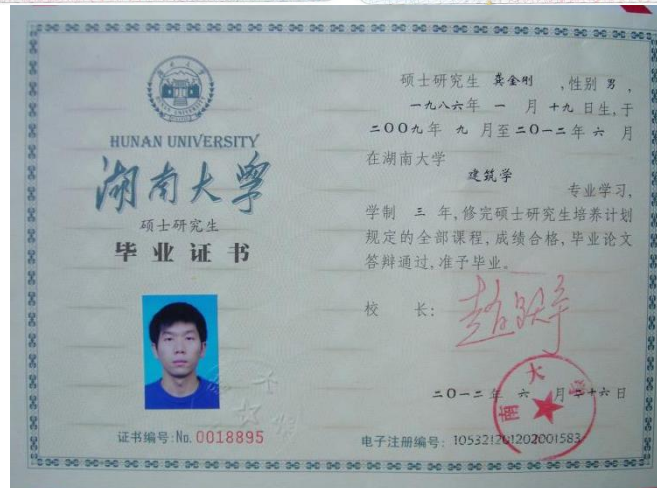 湖南大学
HUNAN UNIVERSITY
HUNAN UNIVERSITY
湖南大学
硕士研究生
毕业证书
证书编号:No. 0018895
硕士研究生 龚金刚 ,性别 男 ,
一九八六年 一 月 十九 日生,于
二〇〇九年 九 月至二〇一二年 六 月
在湖南大学
建筑学
专业学习,
学制 三 年,修完硕士研究生培养计划
规定的全部课程,成绩合格,毕业论文
答辩通过,准予毕业。
校 长:
二〇一二 年 六 月二十六日
南大学
电子注册编号: 105321201202001583